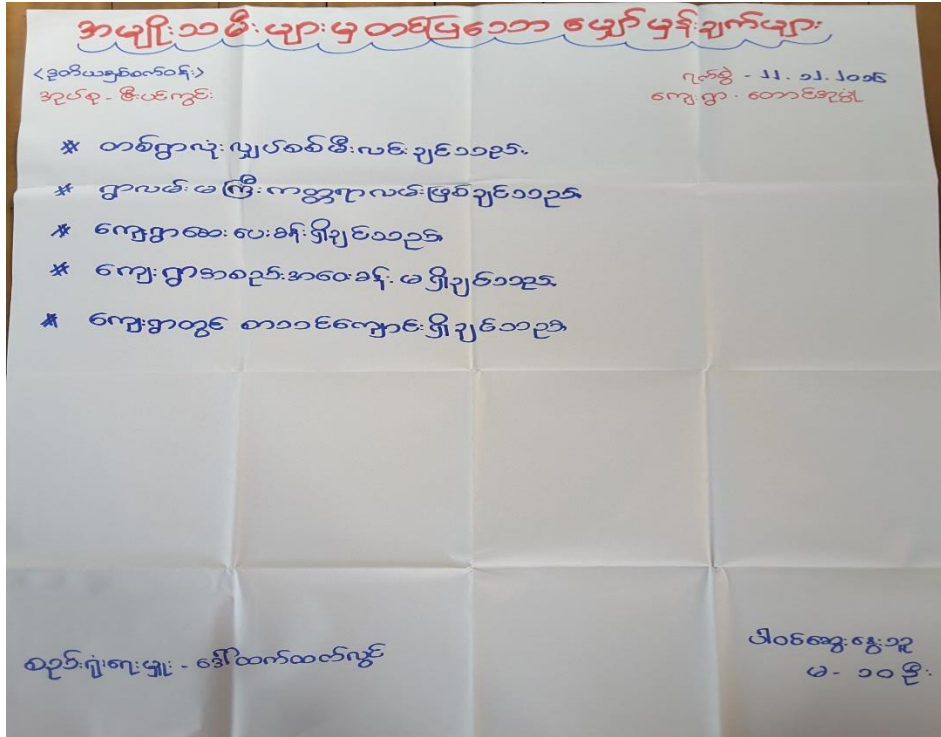 အမျိုးသမီးများမှတင်ပြသော မျှော်မှန်းချက်များ
<ဒုတိယနှစ်စက်ဝန်း>
ရက်စွဲ - ၂၂.၁၂.၂၀၁၆
အုပ်စု - ဇီးပင်ကွင်း
ကျေးရွာ - တောင်အုမ္မဲ့
* တစ်ရွာလုံးလျှပ်စစ်မီးလင်းချင်သည်။
* ရွာလမ်းမကြီးကတ္တရာလမ်းဖြစ်ချင်သည်။
* ကျေးရွာဆေးပေးခန်းရှိချင်သည်။
* ကျေးရွာအစည်းအဝေးခန်းမရှိချင်သည်။
* ကျေးရွာတွင် စာသင်ကျောင်းရှိချင်သည်။
စည်းရုံးရေးမှူး - ဒေါ်ထက်ထက်လွင်
ပါဝင်ဆွေးနွေးသူ
မ - ၁၀ ဦး